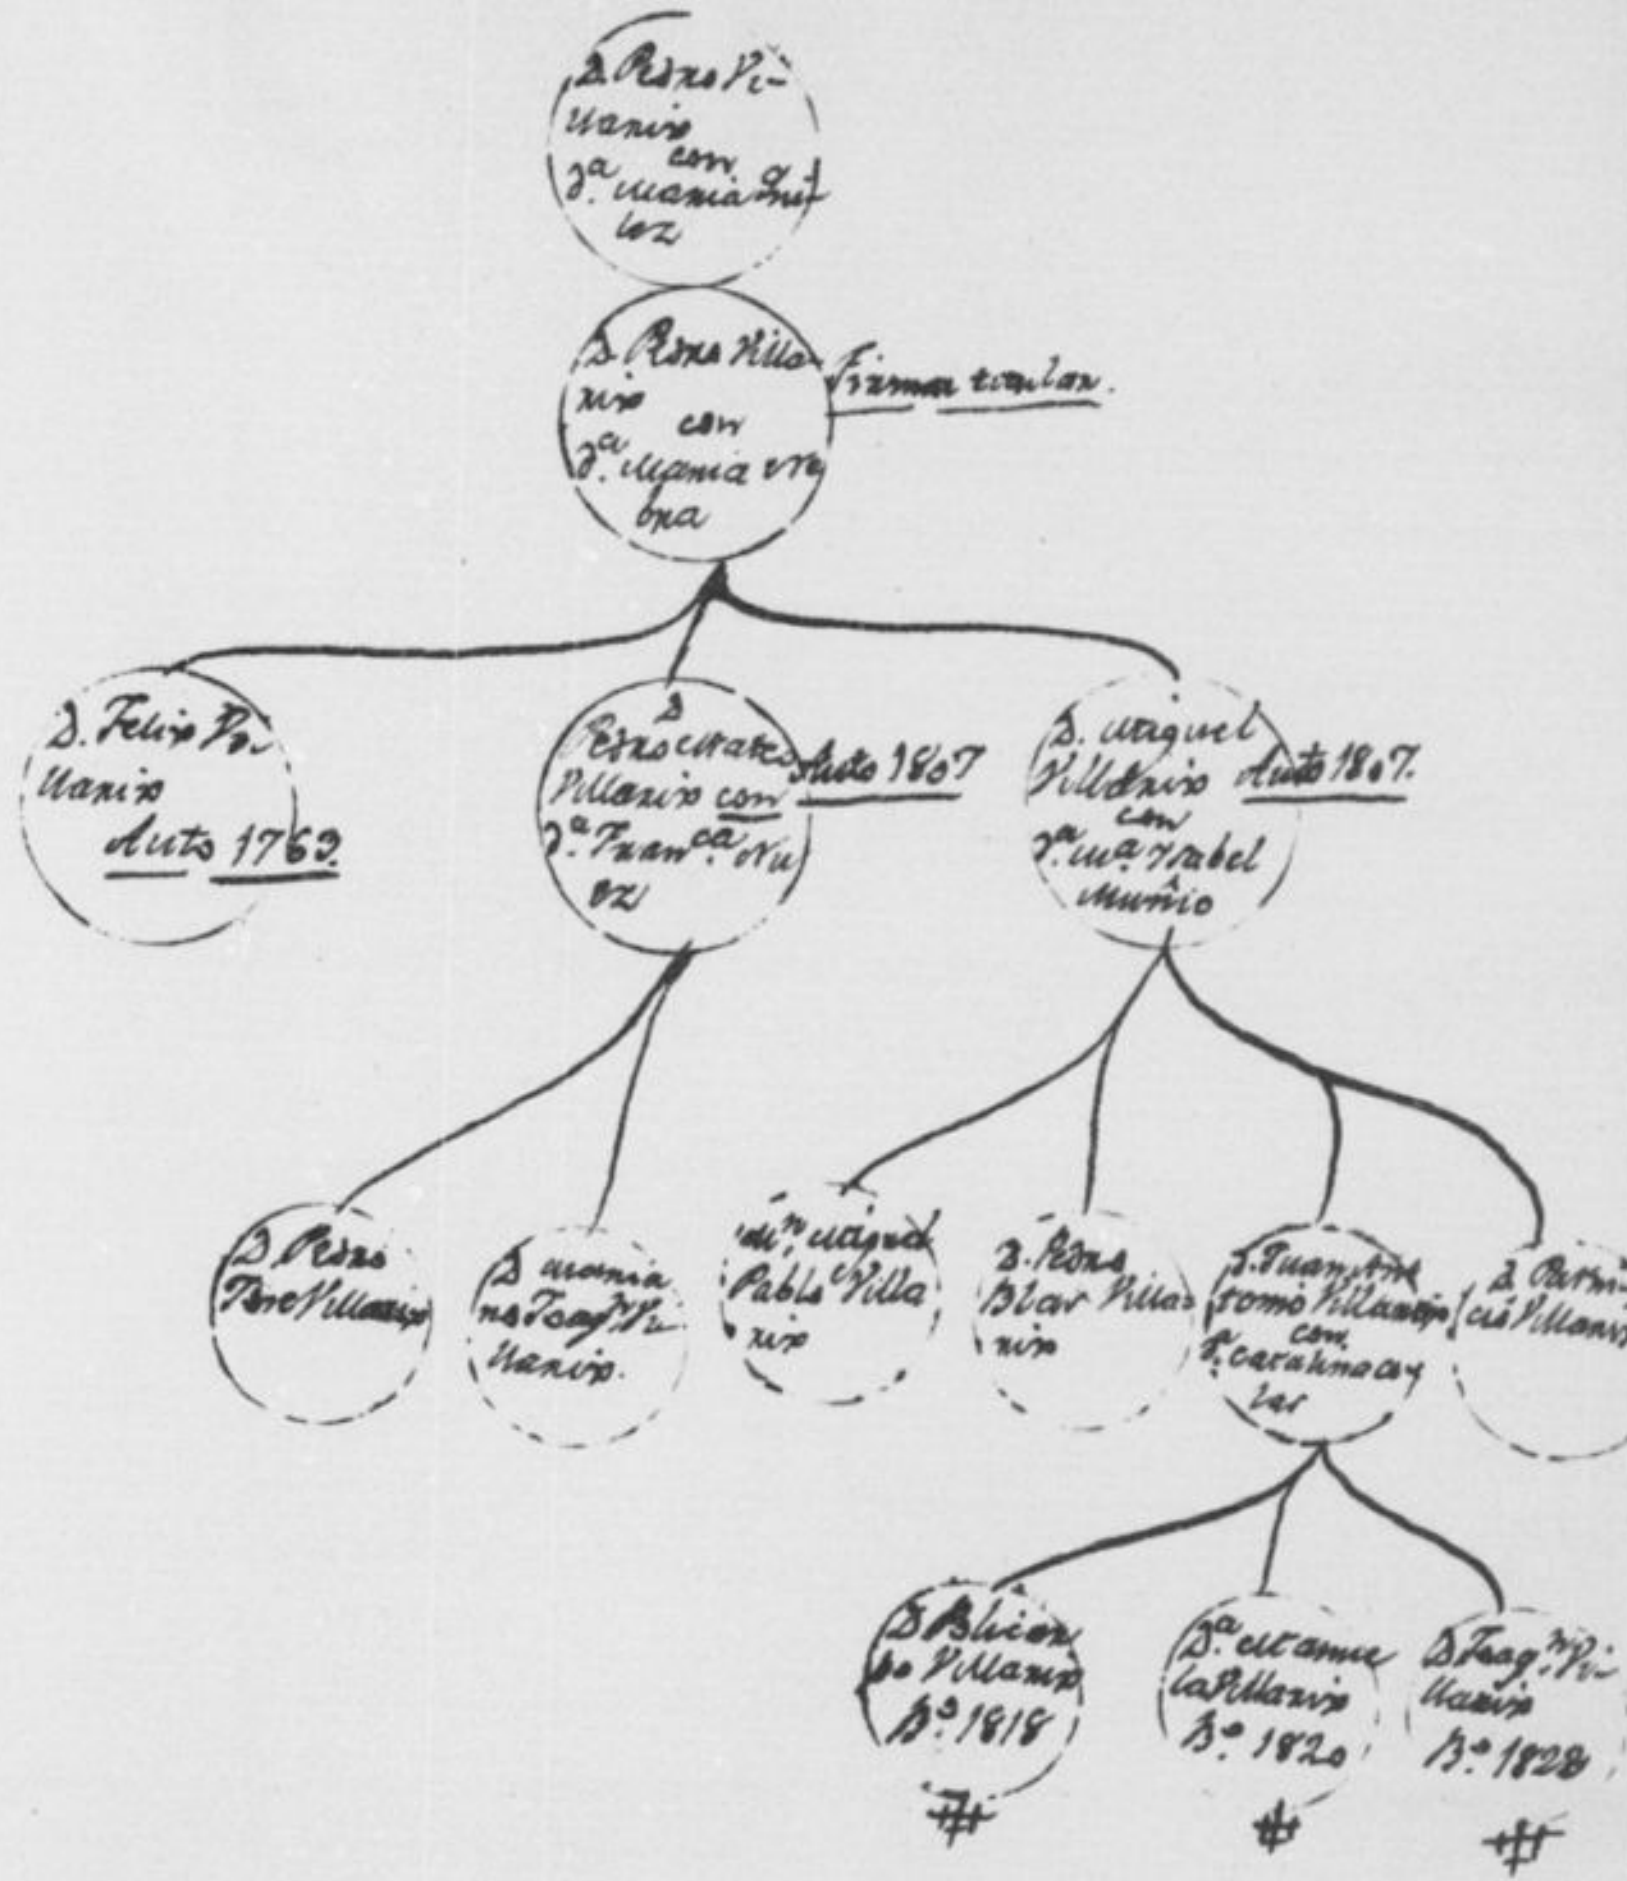 D. Pedro Vi-
llarix
con
D.ª Maria
D. Pedro Villa-
rix
con
D.ª Maria
Firma titular.
D. Felix Vi-
llarix
Auto 1769.
D
Pedro Mateo
Villarix con
D.ª Fran.ca Mu
oz
Auto 1807
D. Miguel
Villarix
con
D.ª M.ª Ysabel
Muñio
Auto 1807.
D. Pedro
Jose Villarix
D Maria
no Joaq.n Vi-
llarix.
M.n Miguel
Pablo Villa
rix
D. Pedro
Blas Villa
rix
D. Juan An
tonio Villarix
con
D.ª Catalina
lar
D. Patri-
cio Villarix
D
Villarix
B.o 1818
D.ª Manue
la Villarix
B.o 1820
D Joaq.n Vi-
llarix
B.o 1828